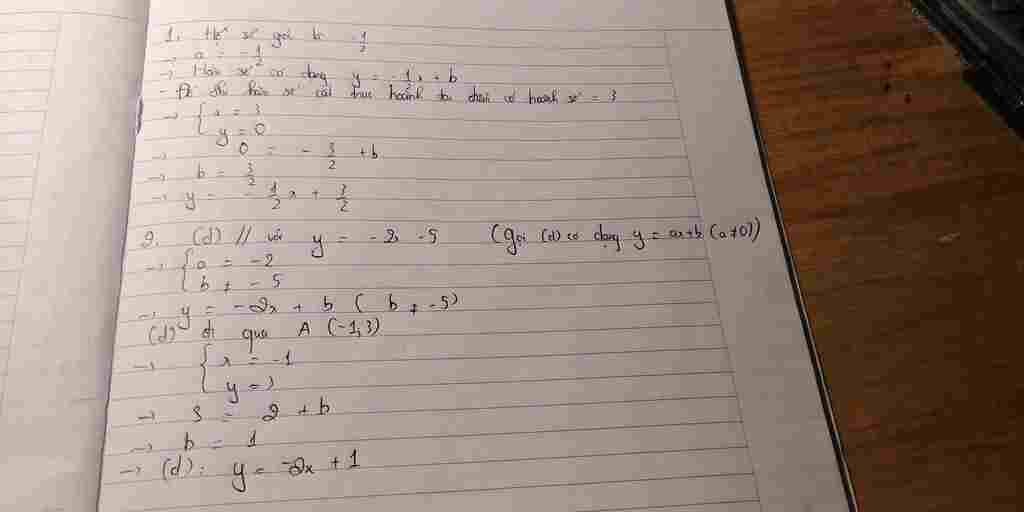 1. Hệ số góc là -1/2
→ a = -1/2
→ Hàm số có dạng y = -1/2 x + b
- Đồ thị hàm số cắt trục hoành tại điểm có hoành số = 3
→ { x = 3
y = 0
→ 0 = - 3/2 + b
→ b = 3/2
→ y = - 1/2 x + 3/2
2. (d) // với y = -2x -5 (Gọi (d) có dạng y = ax+b (a ≠ 0))
→ { a = -2
b ≠ -5
→ y = -2x + b ( b ≠ -5)
(d) đi qua A (-1,3)
→ { x = -1
y = 3
→ 3 = 2 + b
→ b = 1
→ (d): y = -2x + 1